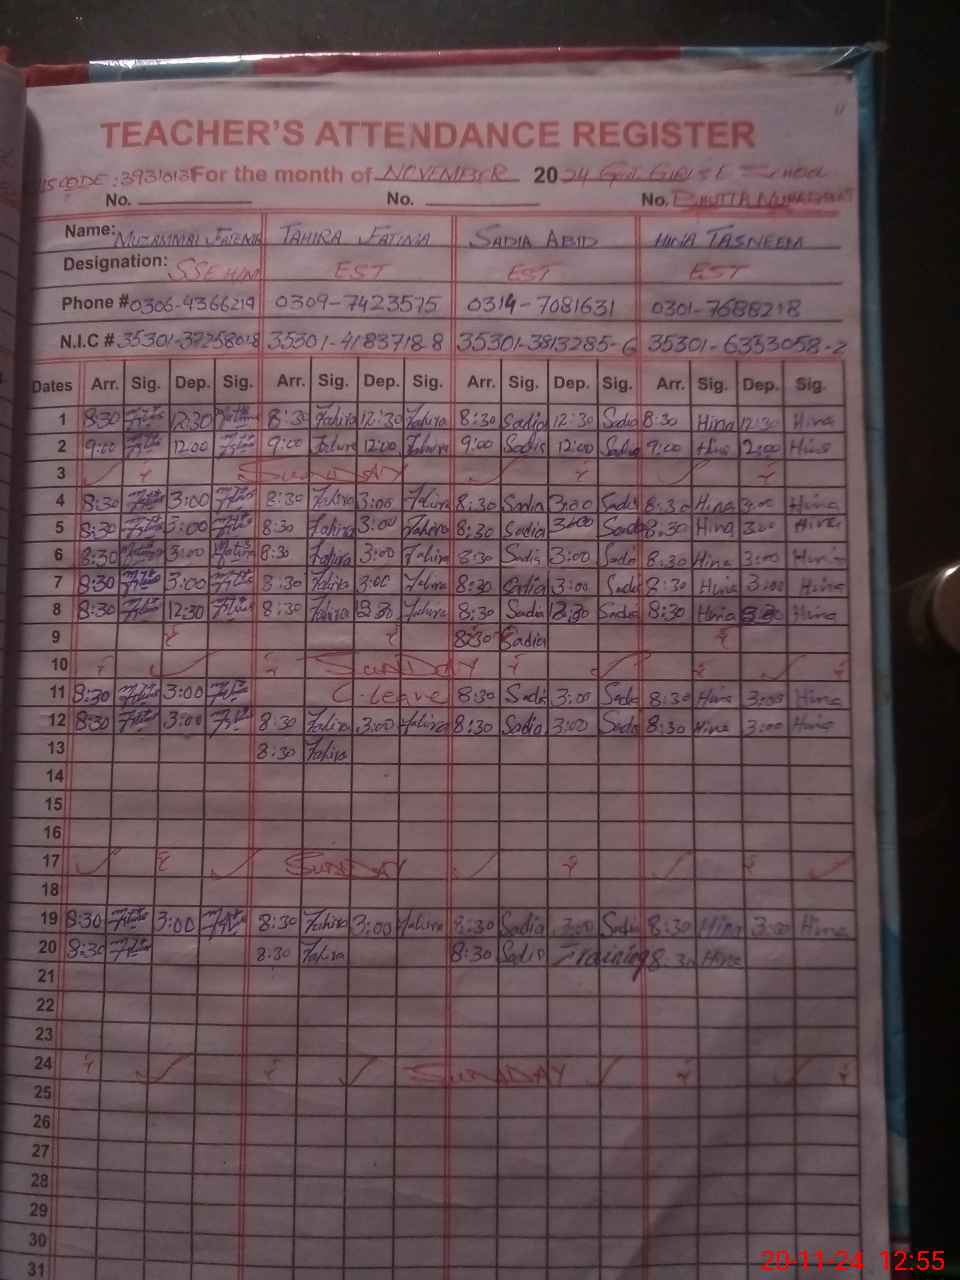 TEACHER'S ATTENDANCE REGISTER
For the month of NOVEMBER 2024 Govt. Girls E School
No. No. No. BHUTTA
Name: FATEMA TAHIRA FATIMA SADIA ABID HINA TASNEEM
Designation: SSE EST EST EST
Phone # 0306-4366219 0309-7423575 0314-7081631 0301-7688218
N.I.C # 35301-4183718-8 35301-3813285-6 35301-6353058-2
Dates Arr. Sig. Dep. Sig. Arr. Sig. Dep. Sig. Arr. Sig. Dep. Sig. Arr. Sig. Dep. Sig.
1 8:30 12:30 8:30 Tahira 12:30 Tahira 8:30 Sadia 12:30 Sadia 8:30 Hina 12:30 Hina
2 9:00 12:00 9:00 Tahira 12:00 Tahira 9:00 Sadia 12:00 Sadia 9:00 Hina 12:00 Hina
3 SUNDAY
4 8:30 3:00 8:30 Tahira 3:00 Tahira 8:30 Sadia 3:00 Sadia 8:30 Hina 3:00 Hina
5 8:30 3:00 8:30 Tahira 3:00 Tahira 8:30 Sadia 3:00 Sadia 8:30 Hina 3:00 Hina
6 8:30 3:00 8:30 Tahira 3:00 Tahira 8:30 Sadia 3:00 Sadia 8:30 Hina 3:00 Hina
7 8:30 3:00 8:30 Tahira 3:00 Tahira 8:30 Sadia 3:00 Sadia 8:30 Hina 3:00 Hina
8 8:30 12:30 8:30 Tahira 12:30 Tahira 8:30 Sadia 12:30 Sadia 8:30 Hina Hina
9 8:30 Sadia
10 SUNDAY
11 8:30 3:00 C-leave 8:30 Sadia 3:00 Sadia 8:30 Hina 3:00 Hina
12 8:30 3:00 8:30 Tahira 3:00 Tahira 8:30 Sadia 3:00 Sadia 8:30 Hina 3:00 Hina
13 8:30 Tahira
14
15
16
17 SUNDAY
18
19 8:30 3:00 8:30 Tahira 3:00 Tahira 8:30 Sadia 3:00 Sadia 8:30 Hina 3:00 Hina
20 8:30 8:30 Tahira 8:30 Sadia Training 8:30 Hina
21
22
23
24 SUNDAY
25
26
27
28
29
30
31
20-11-24 12:55